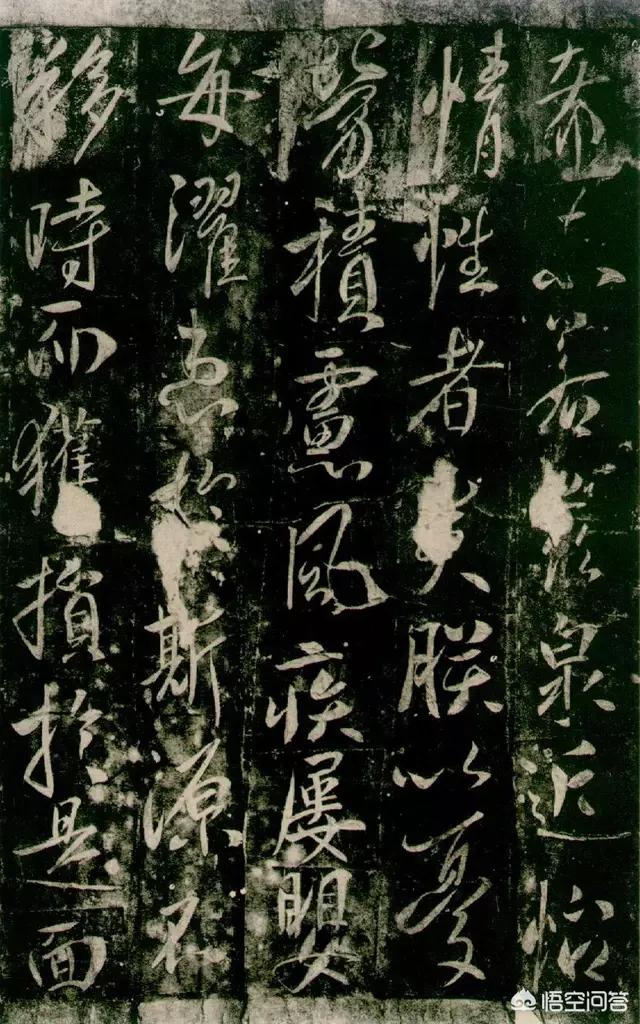 若茲泉近怡
情性者矣朕以憂
勞積慮風疾屢嬰
每濯患於斯源不
移時而獲損於是面
悟空问答